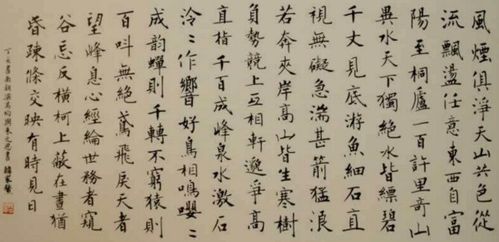 風煙俱淨天山共色從
流飄盪任意東西自富
陽至桐廬一百許里奇山
異水天下獨絕水皆縹碧
千丈見底游魚細石直
視無礙急湍甚箭猛浪
若奔夾岸高山皆生寒樹
負勢競上互相軒邈爭高
直指千百成峰泉水激石
泠々作響好鳥相鳴嚶々
成韻蟬則千轉不窮猿則
百叫無絕鳶飛戾天者
望峰息心經綸世務者窺
谷忘反橫柯上蔽在晝猶
昏疎條交映有時見日
吳均與朱元思書